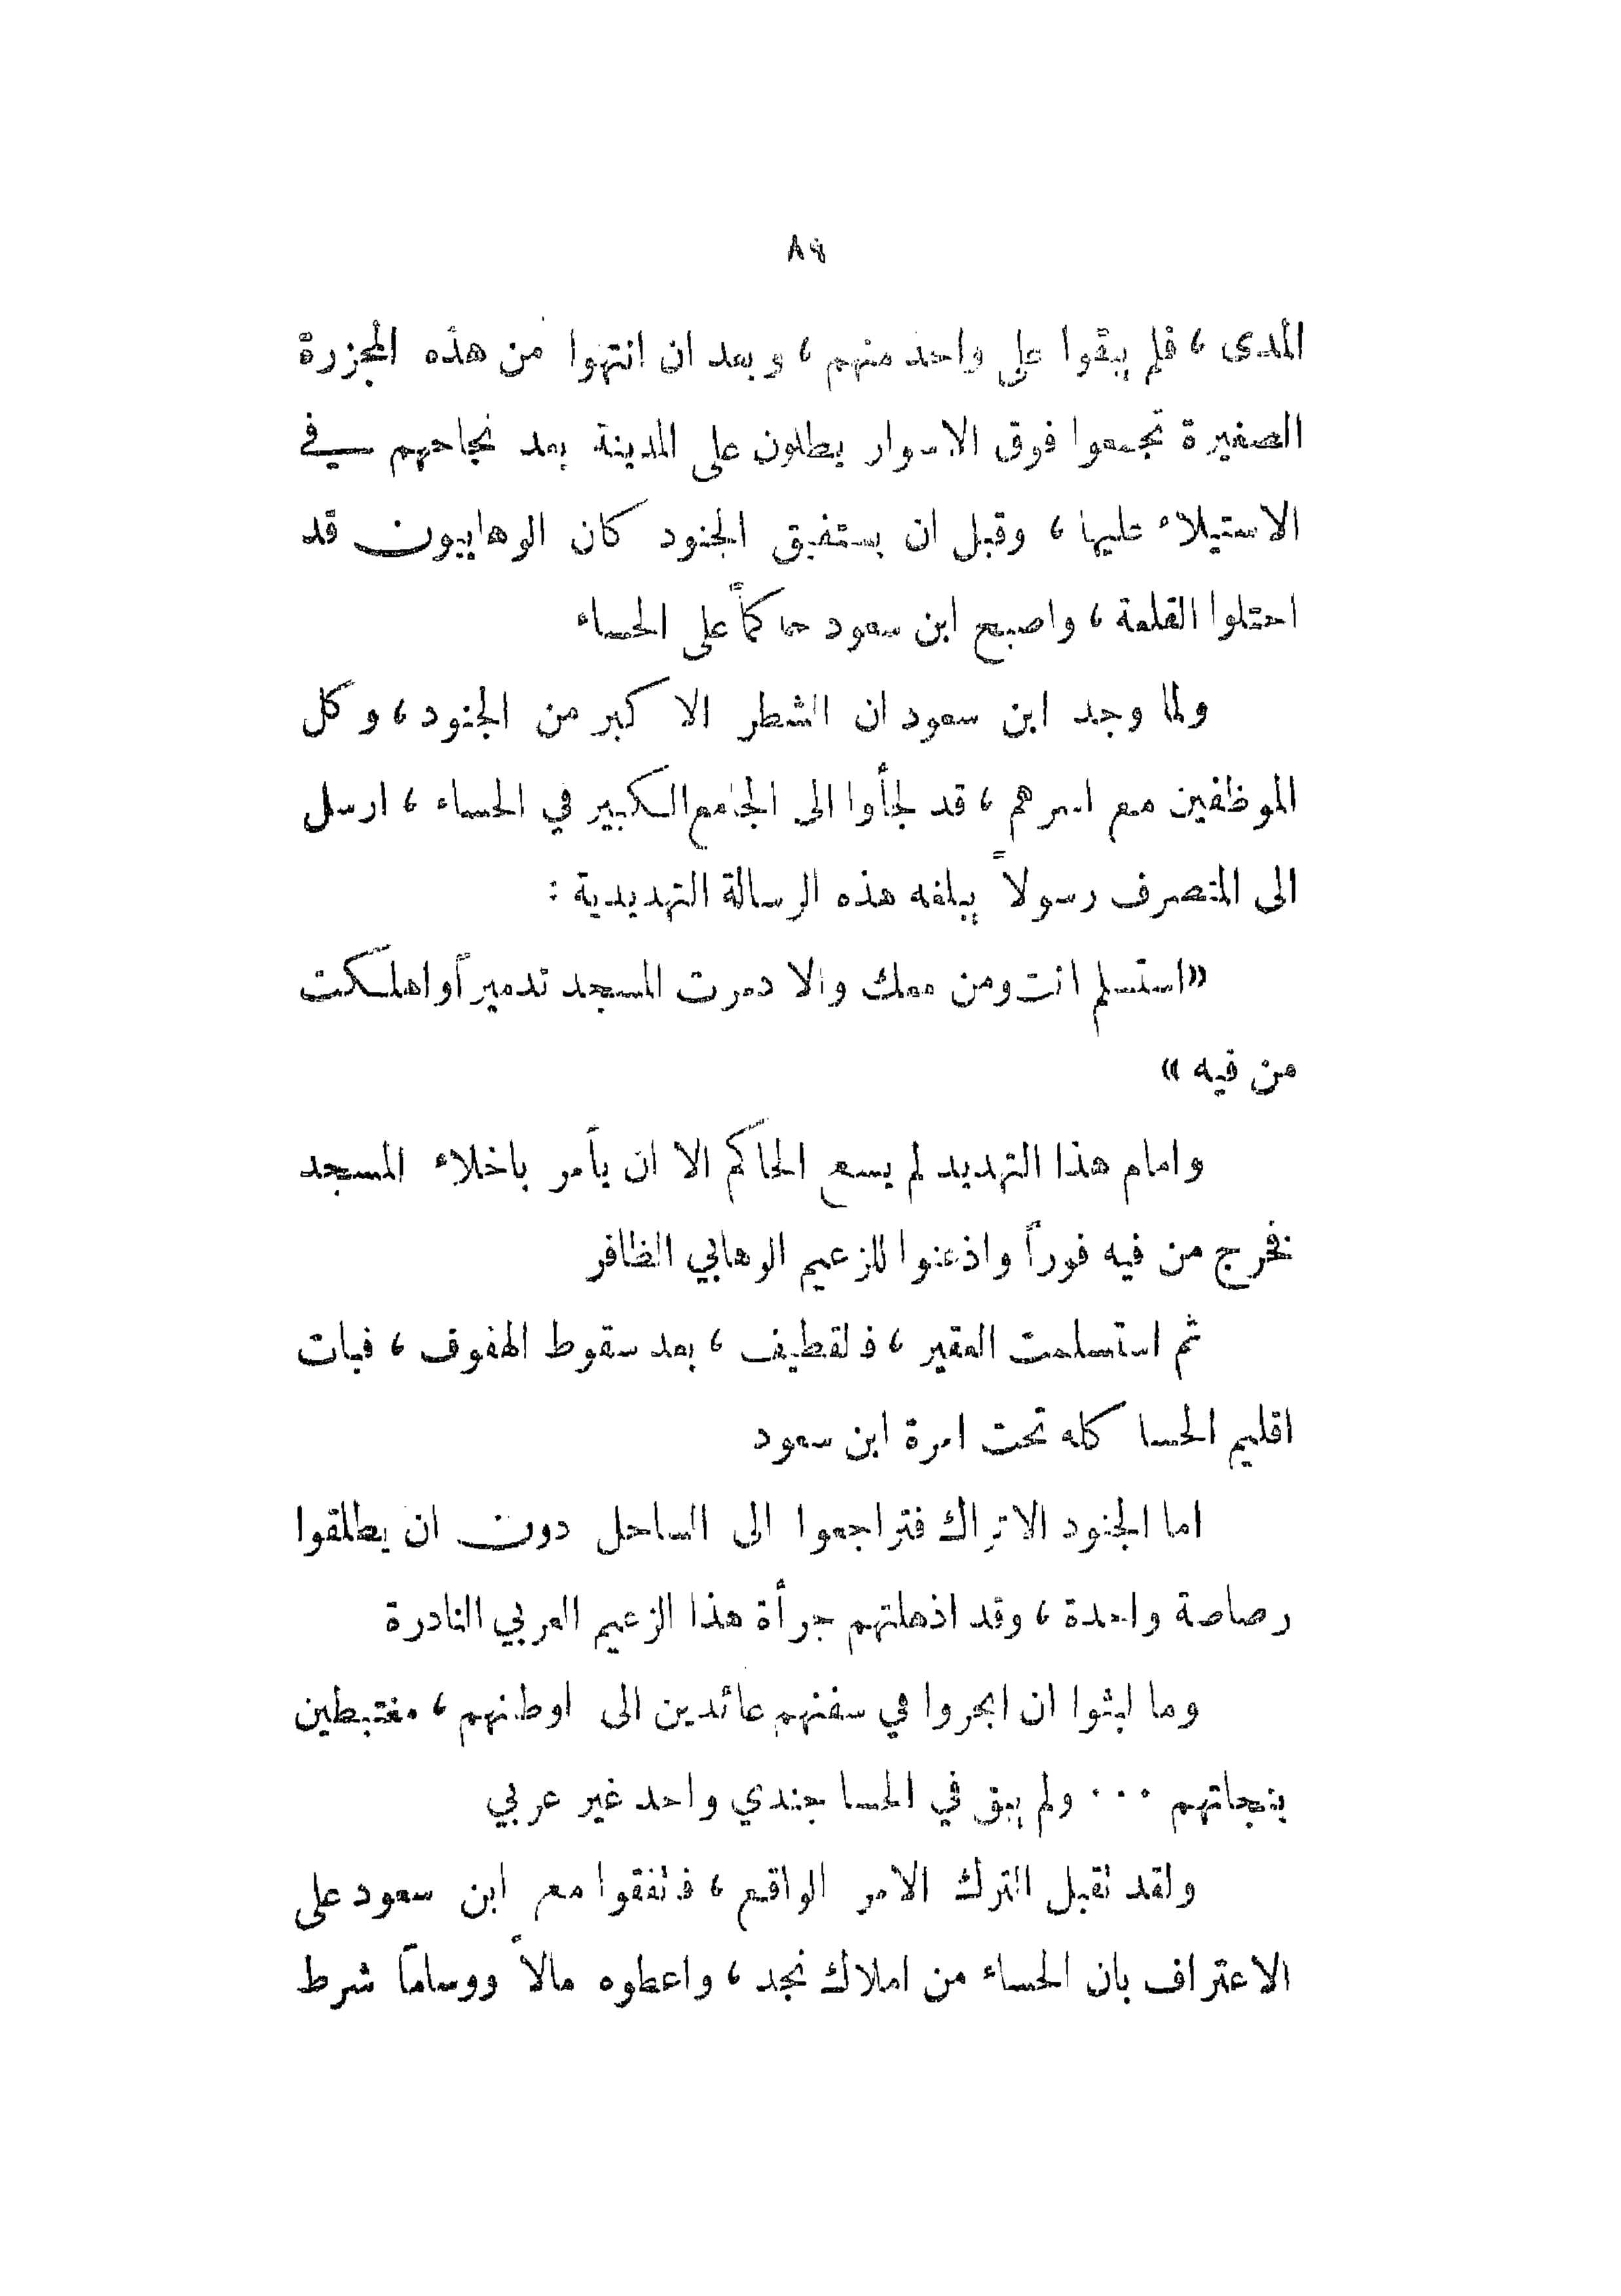 ٨٤
المدى ، فلم يبقوا على واحد منهم ، وبعد ان انتهوا من هذه المجزرة
الصغيرة تجمعوا فوق الاسوار يطلون على المدينة بعد نجاحهم في
الاستيلاء عليها ، وقبل ان يستفيق الجنود كان الوهابيون قد
احتلوا القلعة ، واصبح ابن سعود حاكماً على الحساء
ولما وجد ابن سعود ان الشطر الاكبر من الجنود ، وكل
الموظفين مع اسرهم ، قد لجأوا الى الجامع الكبير في الحساء ، ارسل
الى المتصرف رسولاً يبلغه هذه الرسالة التهديدية :
«استسلم انت ومن معك والا دمرت المسجد تدميراً واهلكت
من فيه »
وامام هذا التهديد لم يسع الحاكم الا ان يأمر باخلاء المسجد
فخرج من فيه فوراً واذعنوا للزعيم الوهابي الظافر
ثم استسلمت العقير ، فالقطيف ، بعد سقوط الهفوف ، فبات
اقليم الحسا كله تحت امرة ابن سعود
اما الجنود الاتراك فتراجعوا الى الساحل دون ان يطلقوا
رصاصة واحدة ، وقد اذهلتهم جرأة هذا الزعيم العربي النادرة
وما لبثوا ان ابحروا في سفنهم عائدين الى اوطانهم ، مغتبطين
بنجاتهم ... ولم يبق في الحسا جندي واحد غير عربي
ولقد تقبل الترك الامر الواقع ، فاتفقوا مع ابن سعود على
الاعتراف بان الحساء من املاك نجد ، واعطوه مالاً ووساماً شرط